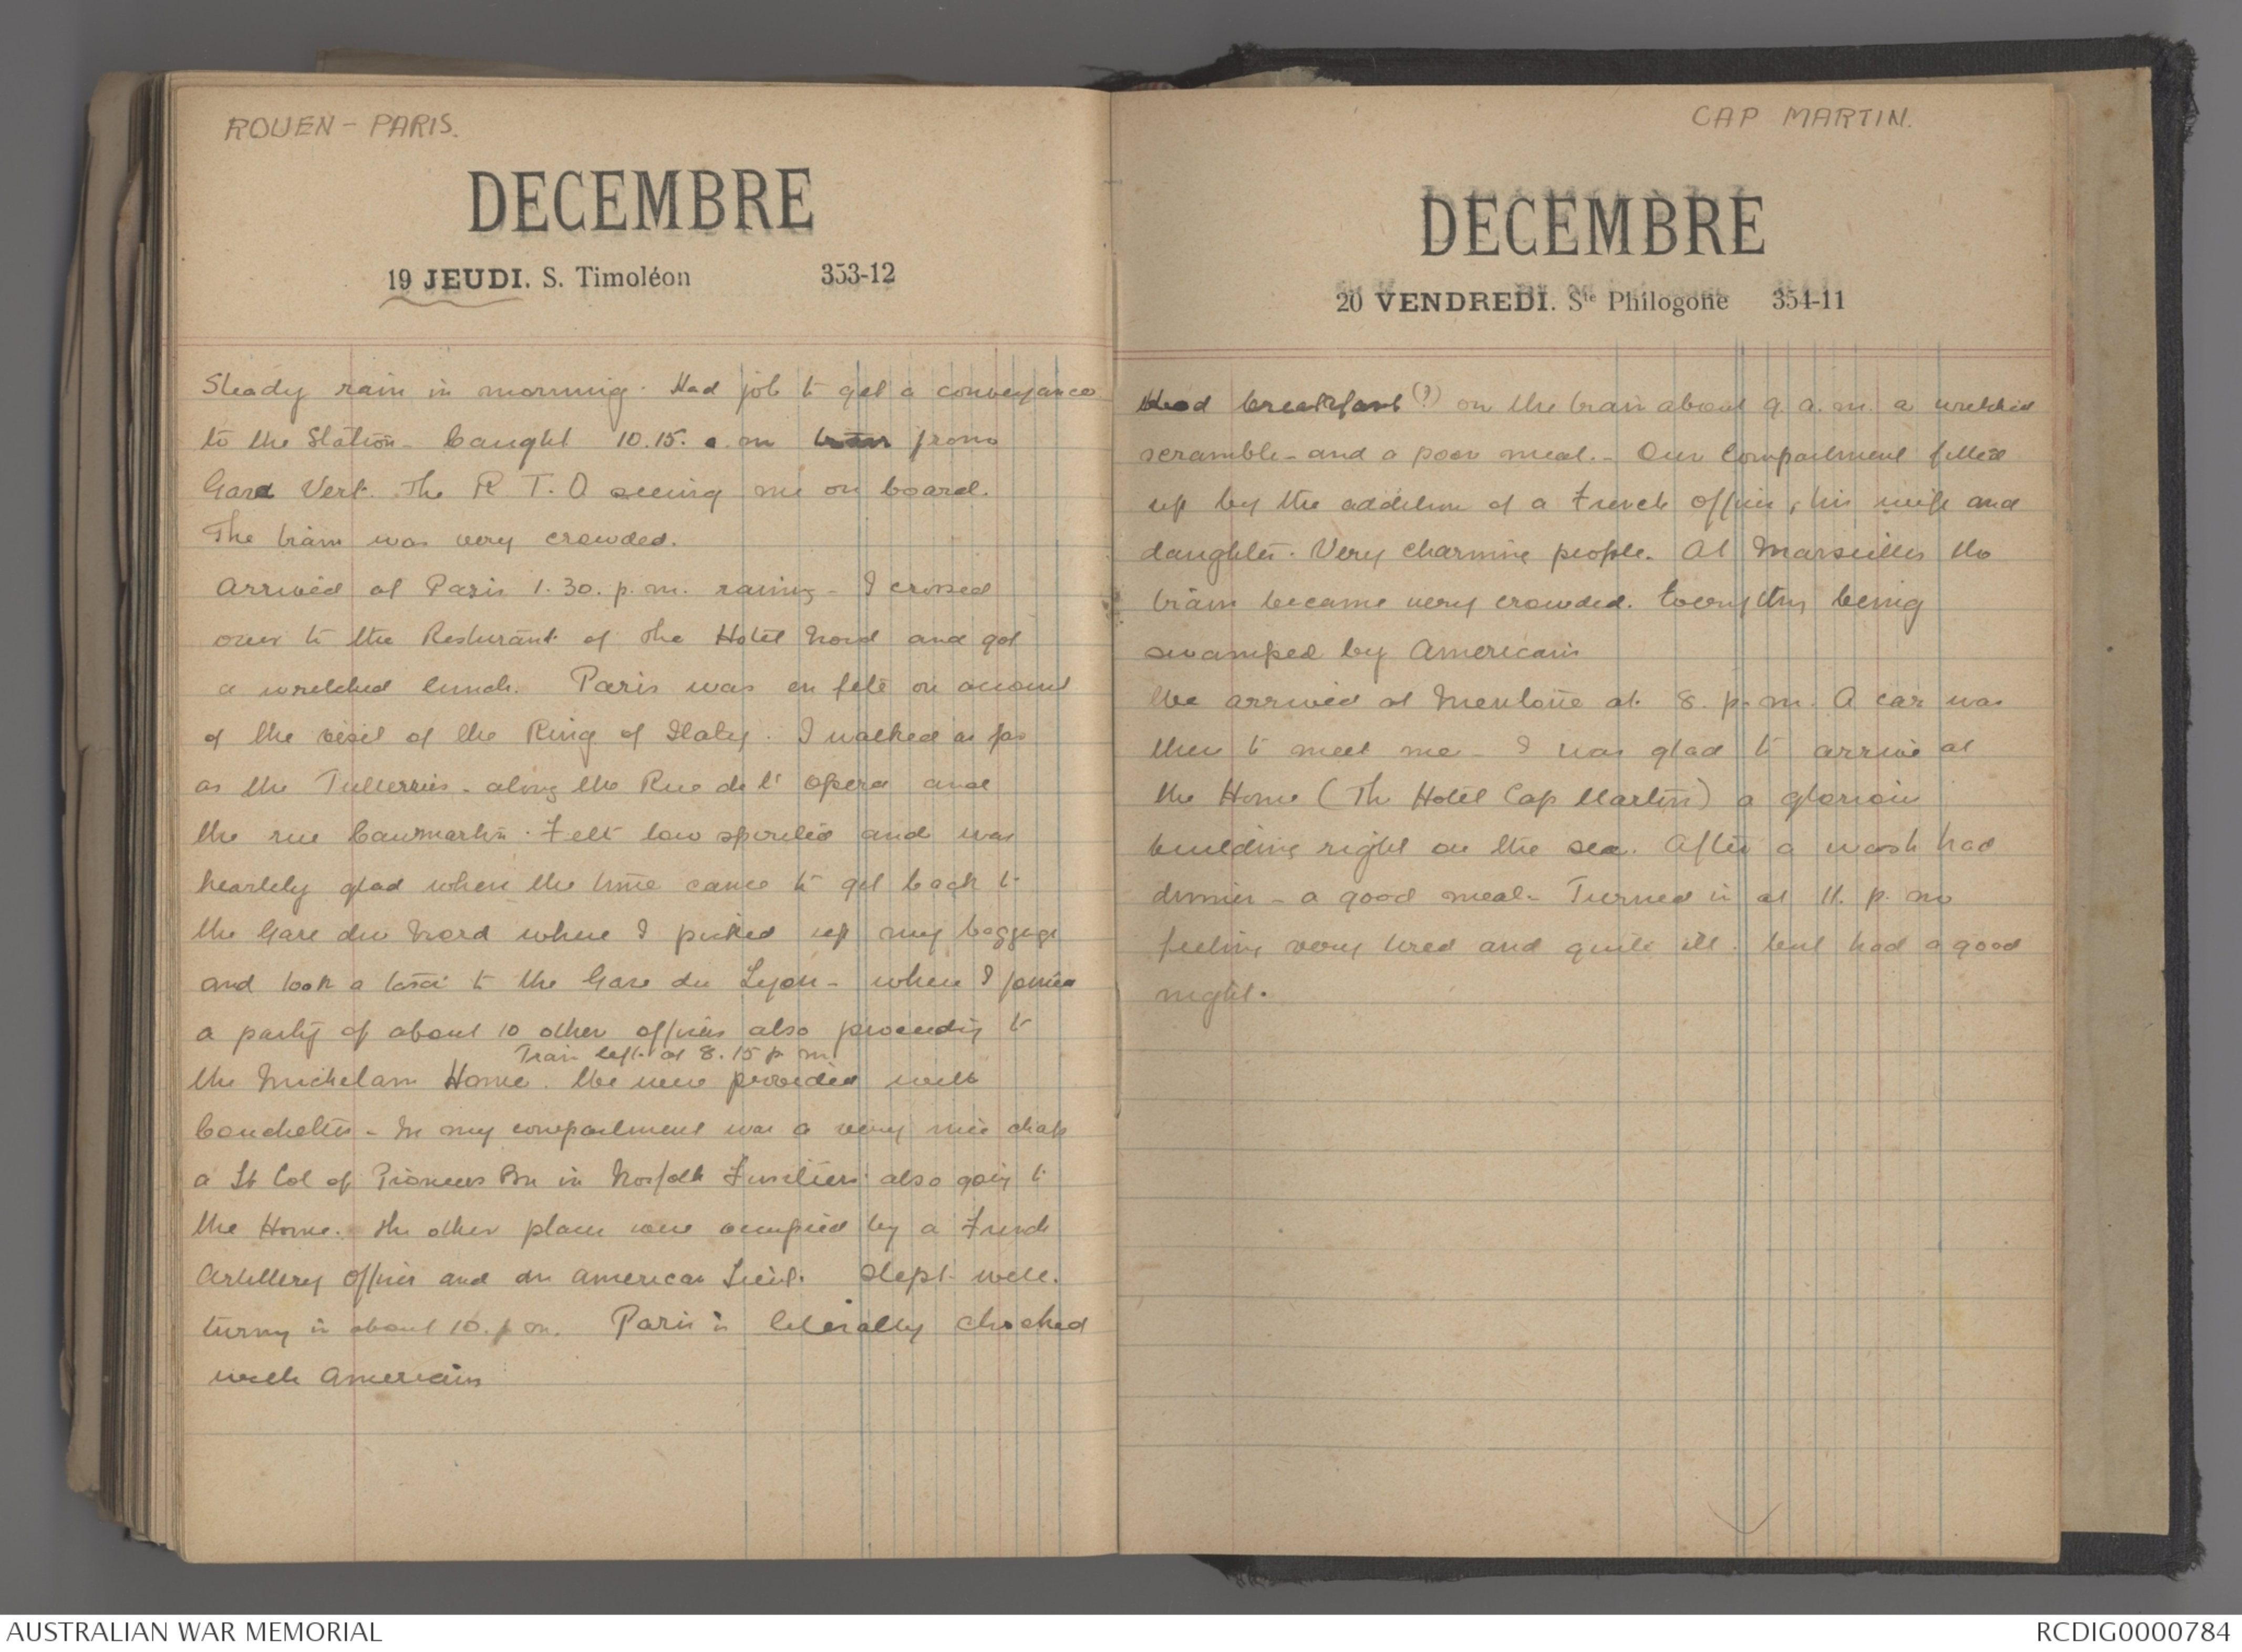 ROUEN - PARIS.
DECEMBRE
19 JEUDI. S. Timoléon 353-12
Steady rain in morning. Had job to get a conveyance
to the Station - Caught 10.15. a.m train from
Gare Vert. The R T. O seeing me on board.
The train was very crowded.
Arrived at Paris 1.30. p.m. raining - I crossed
over to the Resturant of the Hotel Nord and got
a wretched lunch. Paris was en fete on account
of the visit of the King of Italy. I walked as far
as the Tullerries - along the Rue de l' Opera and
the rue Caumartin. Felt low spirited and was
heartily glad when the time came to get back to
the Gare du Nord where I picked up my baggage
and took a taxi to the Gare du Lyon - where I joined
a party of about 10 other officers also proceeding to
Train left at 8.15 p m
the Michelam Home. We were provided with
Couchettes - In my compartment was a very nice chap
a Lt Col of Pioneers Bn in Norfolk Fusiliers also going to
the Home. The other places were occupied by a French
Artillery Officer and an American Lieut. Slept well.
turning in about 10. p m. Paris is literally chocked
with Americans
CAP MARTIN.
DECEMBRE
20 VENDREDI. Ste Philogone 354-11
Had breakfast (?) on the train about 9 a.m. a wretched
scramble - and a poor meal. - Our Compartment filled
up by the addition of a French Officer, his wife and
daughter. Very charming people. At Marseilles the
train became very crowded. Everything being
swamped by Americans
We arrived at Mentone at 8. p.m. A car was
there to meet me - I was glad to arrive at
the Home (The Hotel Cap Martin) a glorious
building right on the sea. After a wash had
dinner - a good meal - Turned in at 11. p. m
feeling very tired and quite ill. but had a good
night.
AUSTRALIAN WAR MEMORIAL
RCDIG0000784